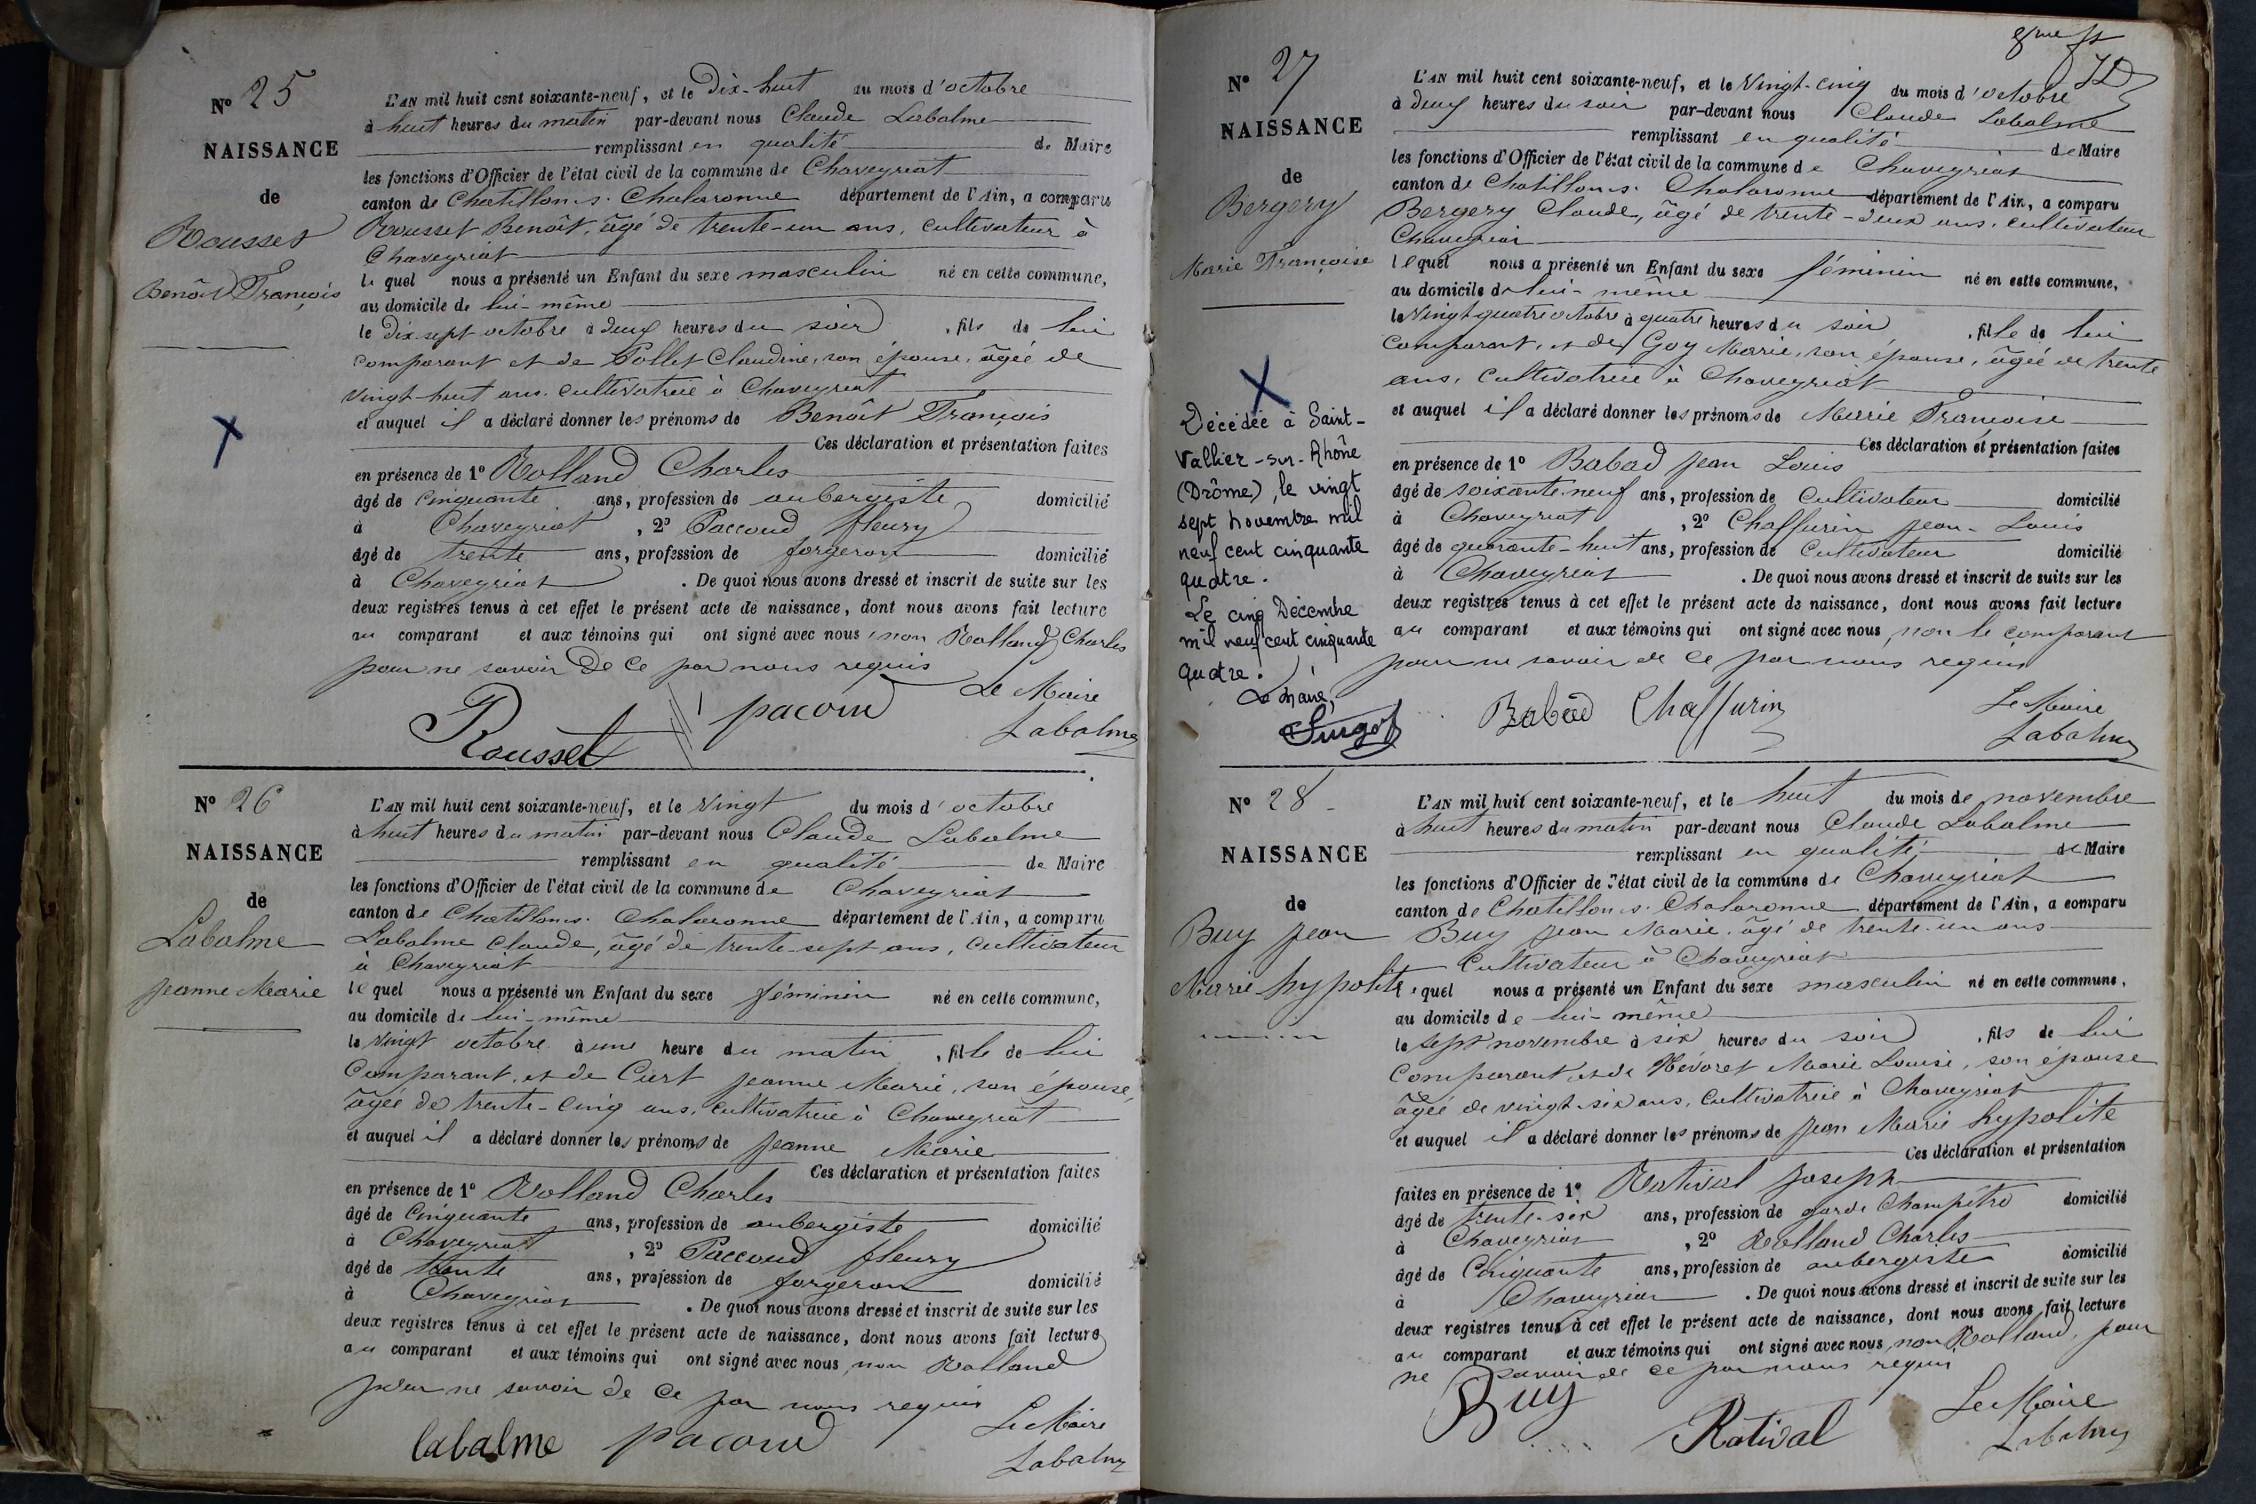 N° 25
NAISSANCE
de
Rousset
Benôit François
L'AN mil huit cent soixante-neuf, et le Dix-huit du mois d'octobre
à huit heures du matin par-devant nous Claude Labalme
remplissant en qualité de Maire
les fonctions d'Officier de l'état civil de la commune de Chaveyriat
canton de Chatillon s. Chalaronne département de l'Ain, a comparu
Rousset Benôit, âgé de trente-un ans, cultivateur à
Chaveyriat
le quel nous a présenté un Enfant du sexe masculin né en cette commune,
au domicile de lui-même
le Dix-sept octobre à deux heures du soir, fils de lui
comparant et de Pollet Claudine, son épouse, âgée de
vingt-huit ans, cultivatrice à Chaveyriat
et auquel il a déclaré donner les prénoms de Benôit François
Ces déclaration et présentation faites
en présence de 1° Rolland Charles
âgé de cinquante ans, profession de aubergiste domicilié
à Chaveyriat, 2° Paccoud fleury
âgé de trente ans, profession de forgeron domicilié
à Chaveyriat. De quoi nous avons dressé et inscrit de suite sur les
deux registres tenus à cet effet le présent acte de naissance, dont nous avons fait lecture
au comparant et aux témoins qui ont signé avec nous, non Rolland Charles
pour ne savoir De ce par nous requis
Le Maire
Rousset pacoud Labalme
N° 26
NAISSANCE
de
Labalme
Jeanne Marie
L'AN mil huit cent soixante-neuf, et le vingt du mois d'octobre
à huit heures du matin par-devant nous Claude Labalme
remplissant en qualité de Maire
les fonctions d'Officier de l'état civil de la commune de Chaveyriat
canton de Chatillon s. Chalaronne département de l'Ain, a comparu
Labalme Claude, âgé de trente-sept ans, cultivateur
à Chaveyriat
le quel nous a présenté un Enfant du sexe féminin né en cette commune,
au domicile de lui-même
le vingt octobre à une heure du matin, fille de lui
Comparant, et de Curt Jeanne Marie, son épouse,
âgée de trente-cinq ans, cultivatrice à Chaveyriat
et auquel il a déclaré donner les prénoms de Jeanne Marie
Ces déclaration et présentation faites
en présence de 1° Rolland Charles
âgé de Cinquante ans, profession de aubergiste domicilié
à Chaveyriat, 2° Paccoud fleury
âgé de trente ans, profession de forgeron domicilié
à Chaveyriat. De quoi nous avons dressé et inscrit de suite sur les
deux registres tenus à cet effet le présent acte de naissance, dont nous avons fait lecture
au comparant et aux témoins qui ont signé avec nous, non Rolland
pour ne savoir de ce par nous requis
Le Maire
labalme pacoud Labalme
8me ft
N° 27
NAISSANCE
de
Bergery
Marie Françoise
Décédée à Saint-
Vallier-sur-Rhône
(Drôme), le vingt
sept novembre mil
neuf cent cinquante
quatre.
Le cinq Décembre
mil neuf cent cinquante
quatre.
Le maire,
L'AN mil huit cent soixante-neuf, et le Vingt-cinq du mois d'octobre
à deux heures du soir par-devant nous Claude Labalme
remplissant en qualité de Maire
les fonctions d'Officier de l'état civil de la commune de Chaveyriat
canton de Chatillon s. Chalaronne département de l'Ain, a comparu
Bergery Claude, âgé de trente-deux ans, cultivateur
Chaveyriat
lequel nous a présenté un Enfant du sexe féminin né en cette commune,
au domicile de lui-même
le Vingt quatre octobre à quatre heures du soir, fille de lui
comparant, et de Goy Marie, son épouse, âgée de trente
ans, cultivatrice à Chaveyriat
et auquel il a déclaré donner les prénoms de Marie Françoise
Ces déclaration et présentation faites
en présence de 1° Babad Jean Louis
âgé de soixante-neuf ans, profession de Cultivateur domicilié
à Chaveyriat, 2° Chaffurin Jean-Louis
âgé de quarante-huit ans, profession de Cultivateur domicilié
à Chaveyriat. De quoi nous avons dressé et inscrit de suite sur les
deux registres tenus à cet effet le présent acte de naissance, dont nous avons fait lecture
au comparant et aux témoins qui ont signé avec nous, non le comparant
pour ne savoir de ce par nous requis
Le Maire
Babad Chaffurin Labalme
N° 28
NAISSANCE
de
Buy Jean
Marie hypolite
L'AN mil huit cent soixante-neuf, et le huit du mois de novembre
à huit heures du matin par-devant nous Claude Labalme
remplissant en qualité de Maire
les fonctions d'Officier de l'état civil de la commune de Chaveyriat
canton de Chatillon s. Chalaronne département de l'Ain, a comparu
Buy Jean Marie, âgé de trente-un ans
Cultivateur à Chaveyriat
lequel nous a présenté un Enfant du sexe masculin né en cette commune,
au domicile de lui-même
le sept novembre à six heures du soir, fils de lui
Comparant, et de Névoret Marie Louise, son épouse
âgée de vingt-six ans, Cultivatrice à Chaveyriat
et auquel il a déclaré donner les prénoms de Jean Marie hypolite
Ces déclaration et présentation
faites en présence de 1° Rativat Joseph
âgé de trente-six ans, profession de garde Champêtre domicilié
à Chaveyriat, 2° Rolland Charles
âgé de Cinquante ans, profession de aubergiste domicilié
à Chaveyriat. De quoi nous avons dressé et inscrit de suite sur les
deux registres tenus à cet effet le présent acte de naissance, dont nous avons fait lecture
au comparant et aux témoins qui ont signé avec nous, non Rolland, pour
ne savoir de ce par nous requis
Buy Le Maire
Rativat Labalme